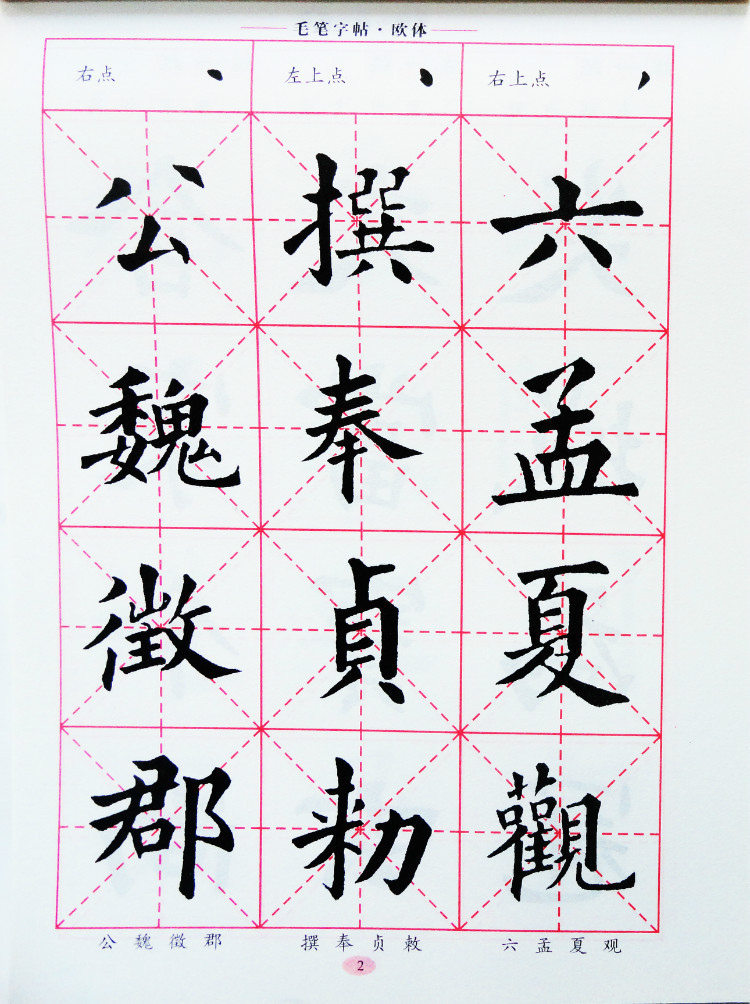 毛笔字帖·欧体
右点 左上点 右上点
公 撰 六
魏 奉 孟
徵 貞 夏
郡 勑 觀
公魏徵郡 撰奉贞敕 六孟夏观
2